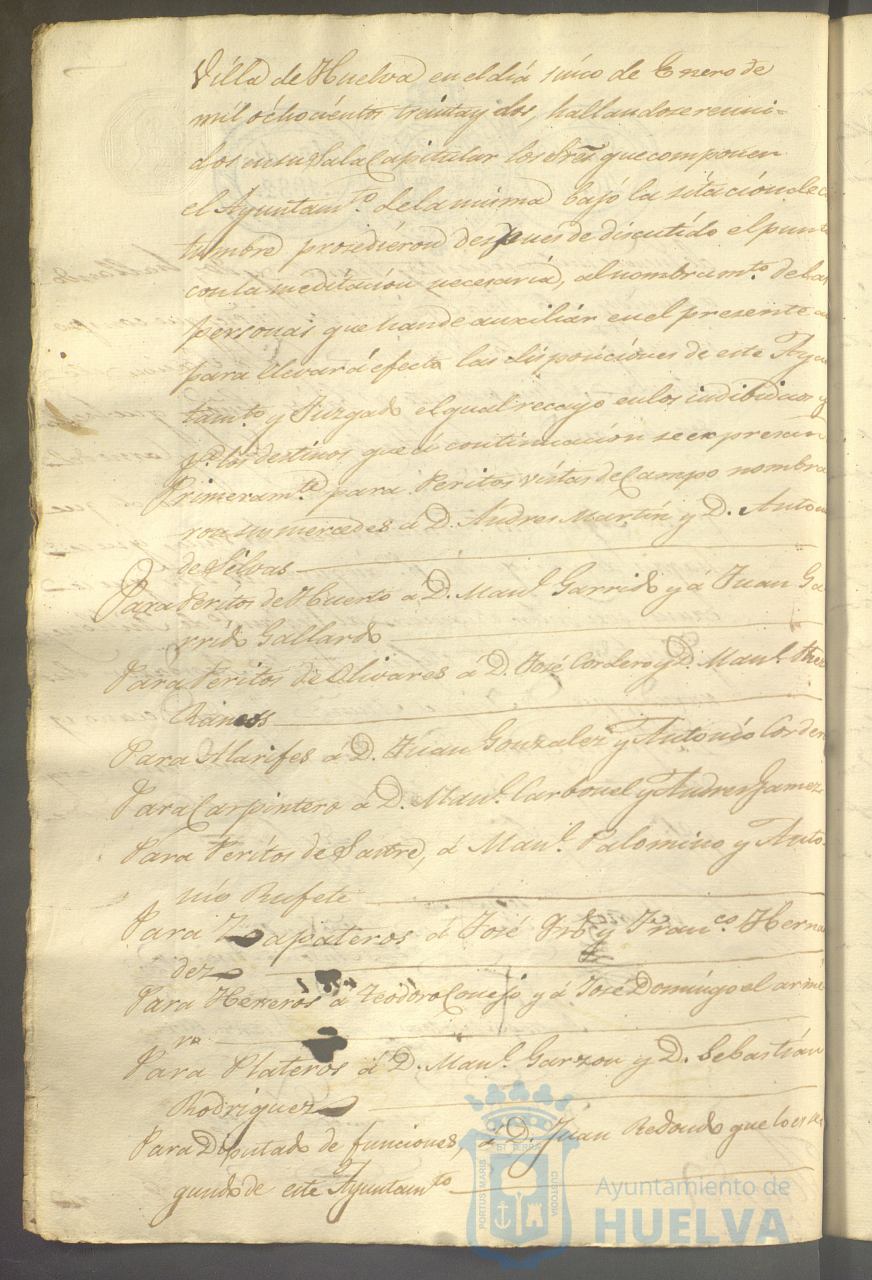 Villa de Huelva en el dia sinco de Enero de
mil ochocientos treinta y dos, hallandose reuni-
dos en su Sala Capitular los Sres que componen
el Ayuntamto. de la misma bajo la sitación de cos
tumbre prosedieron despues de discutido el punto
con la meditacion necesaria, al nombramto. de las
personas que han de auxiliar en el presente
para llevar á efecto las disposiciones de este Ayun
tamto. y Juzgado el qual recayo en los indibiduos y
pa. los destinos que á continuacion se expresan
Primeramte. para Peritos vistas de Campo nombra
ron sus mercedes á D. Andres Martin y D. Antonio
de Silvas
Para Peritos de Huerto á D. Manl. Garrido y á Juan Ga
rrido Gallardo
Para Peritos de Olivares á D. José Cordero y D. Manl.
Ramos
Para Alarifes á D. Juan Gonzalez y Antonio Corder
Para Carpintero á D. Manl. Carbonel y Andres Gamez
Para Peritos de Sastre, á Manl. Palomino y Anto-
nio Rufete
Para Zapateros á José y Franco. Herna
dez
Para Herreros á Teodoro Conejo y á José Domingo el arme
ro
Para Plateros á D. Manl. Garzon y D. Sebastián
Rodriguez
Para Diputado de funciones, á D. Juan Redondo que lo es se
gundo de este Ayuntamto
PORTUS MARIS
ET TERRE
CUSTODIA
Ayuntamiento de
HUELVA